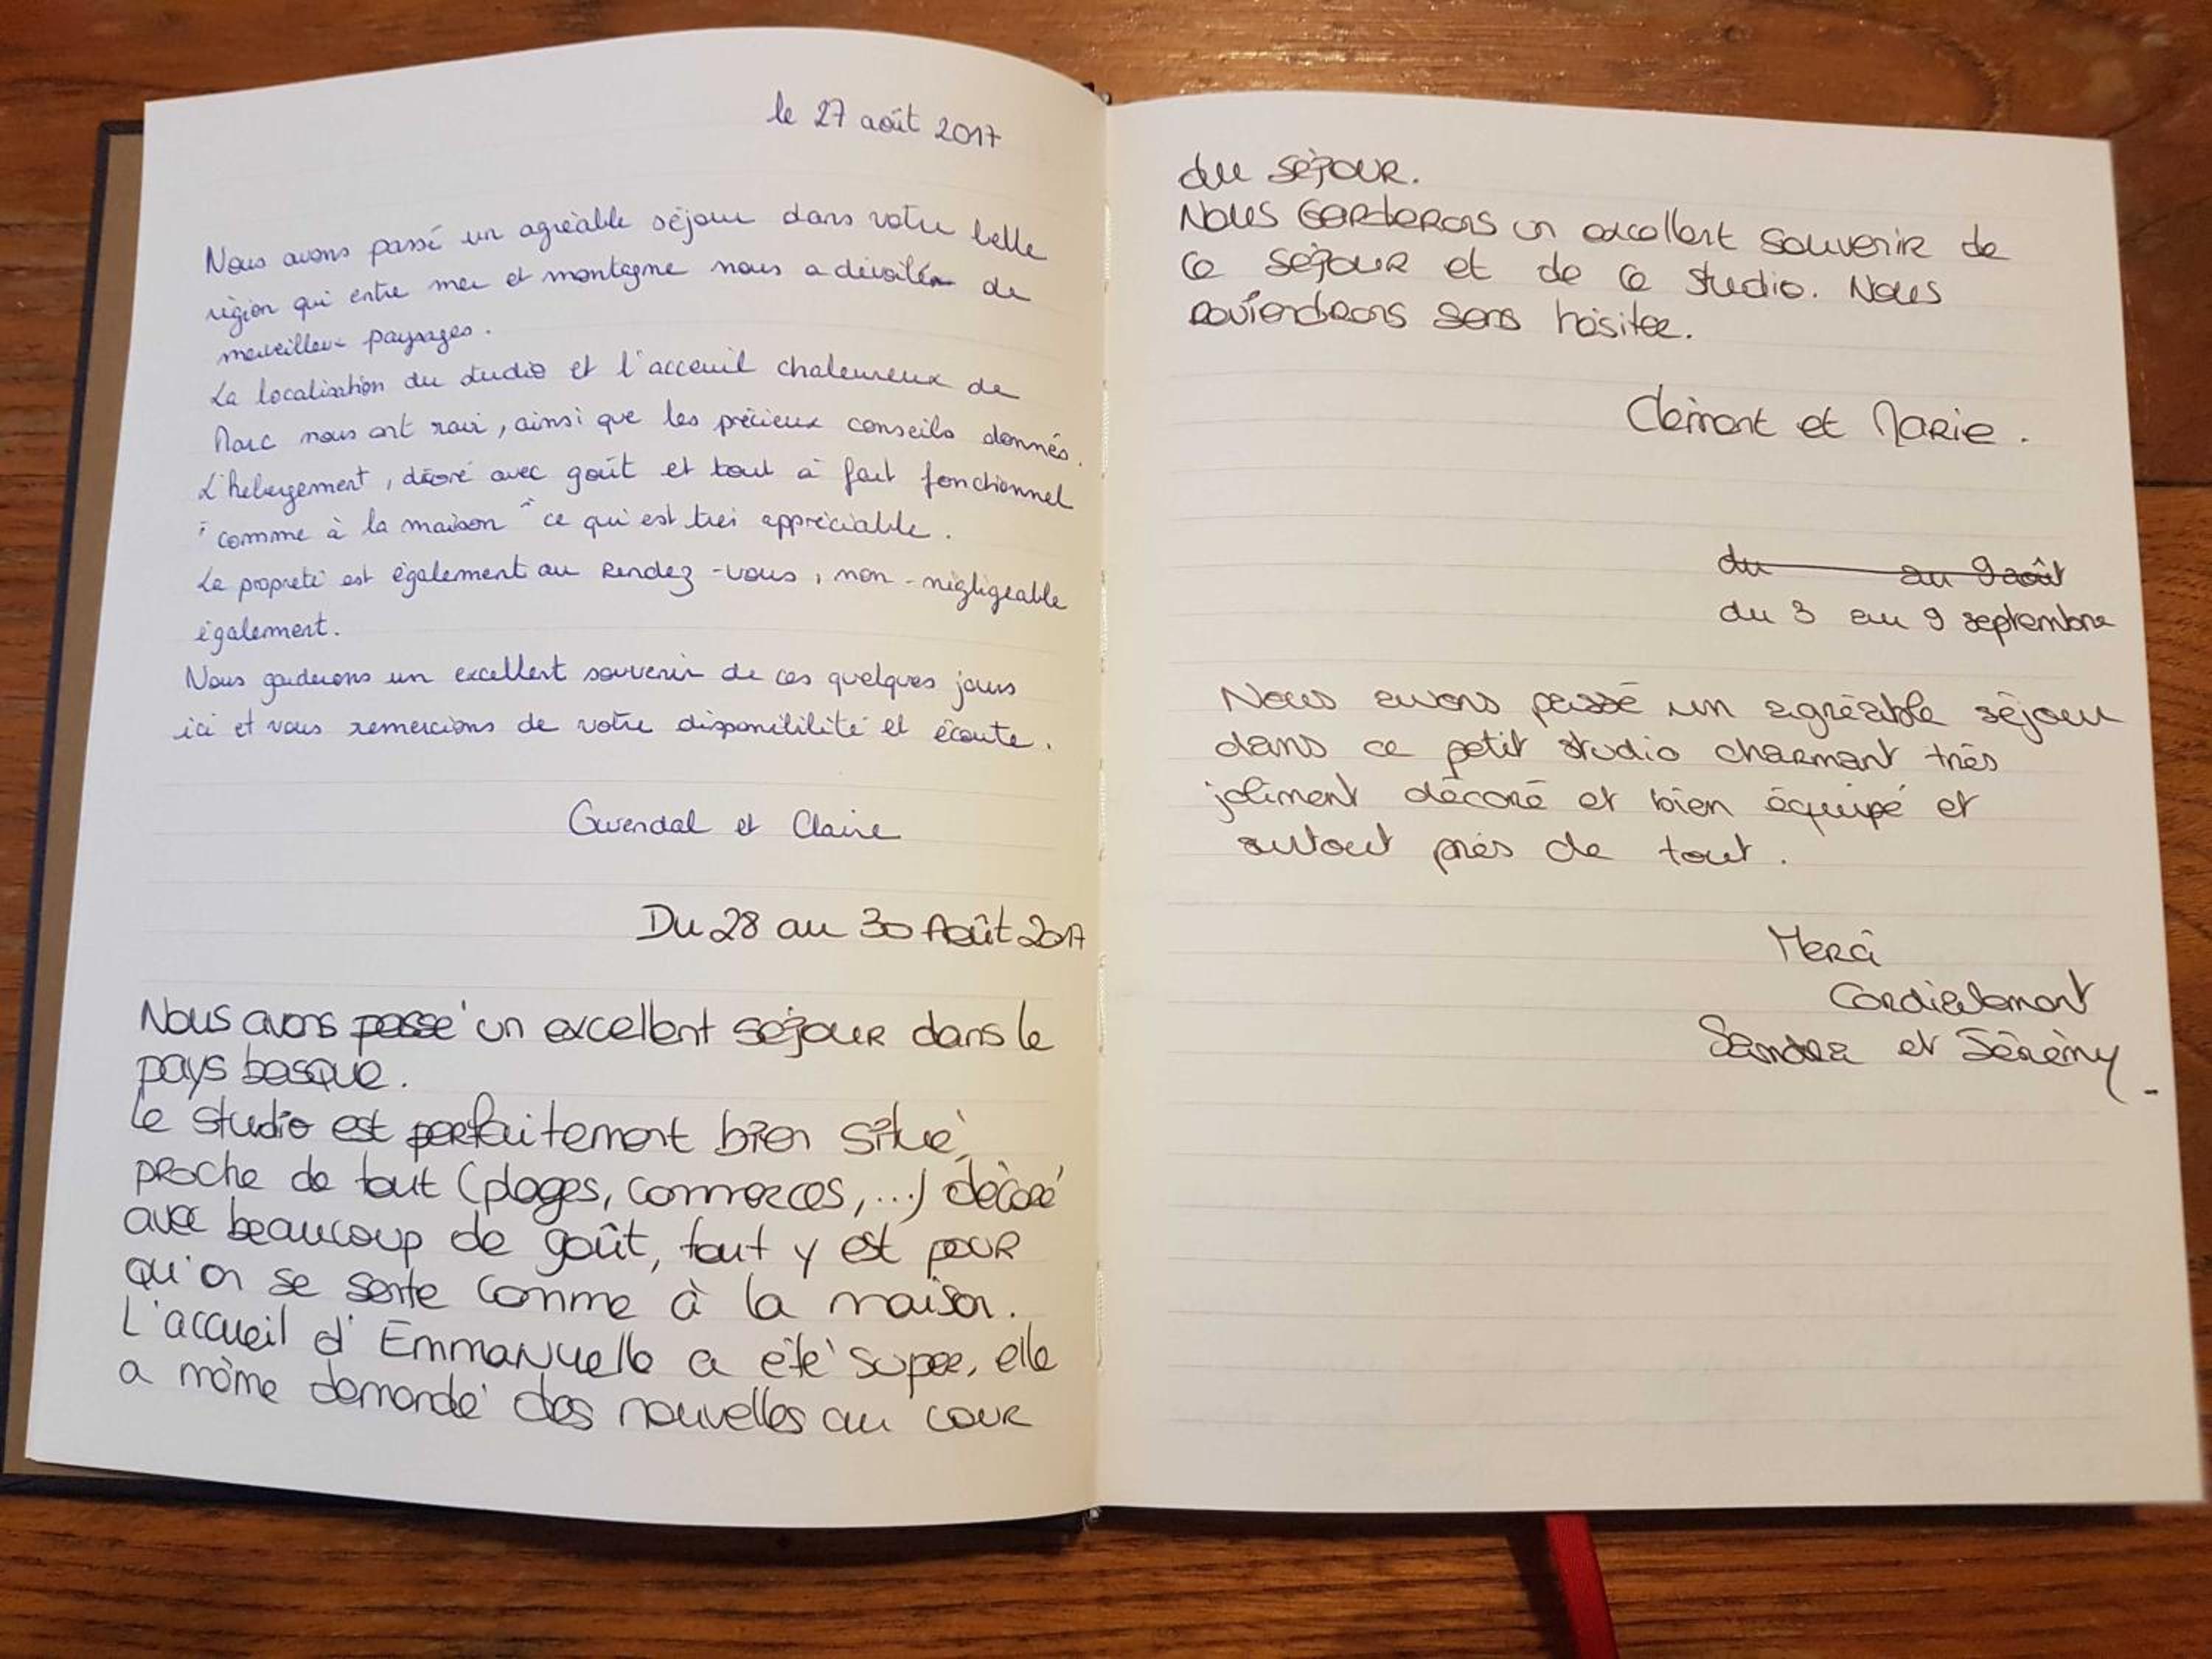 le 27 août 2017
Nous avons passé un agréable séjour dans votre belle
région qui entre mer et montagne nous a dévoilé de
merveilleux paysages.
La localisation du studio et l'acceuil chaleureux de
Marc nous ont ravi, ainsi que les précieux conseils donnés.
L'hebergement, décoré avec goût et tout à fait fonctionnel
"comme à la maison" ce qui est très appréciable.
La propreté est également au Rendez-vous, non-négligeable
également.
Nous garderons un excellent souvenir de ces quelques jours
ici et vous remercions de votre disponibilité et écoute.
Gwendal et Claire
Du 28 au 30 Août 2017
Nous avons passé un excellent séjour dans le
pays basque.
Le studio est parfaitement bien situé,
proche de tout (plages, commerces,...) décoré
avec beaucoup de goût, tout y est pour
qu'on se sente comme à la maison.
L'accueil d'Emmanuelle a été super, elle
a même demandé des nouvelles au cour
du séjour.
Nous garderons un excellent souvenir de
ce séjour et de ce studio. Nous
reviendrons sans hésiter.
Clément et Marie.
du au 9 août
du 3 au 9 septembre
Nous avons passé un agréable séjour
dans ce petit studio charmant très
joliment décoré et bien équipé et
surtout près de tout.
Merci
Cordialement
Sandra et Jérémy.